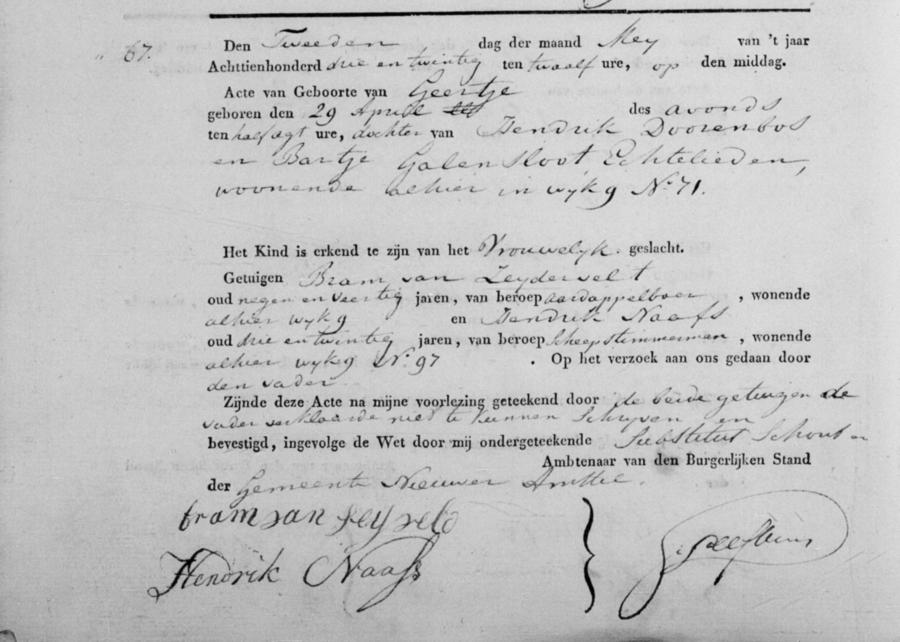 67. Den Tweeden dag der maand Mey van 't jaar
Achttienhonderd drie en twintig ten twaalf ure, op den middag.
Acte van Geboorte van Geertje
geboren den 29 April des avonds
ten half agt ure, dochter van Hendrik Doorenbos
en Bartje Galensloot Echtelieden,
woonende alhier in wyk 9 No. 71.
Het Kind is erkend te zijn van het Vrouwelyk. geslacht.
Getuigen Bram van Zeydervelt
oud negen en veertig jaren, van beroep aardappelboer, wonende
alhier wyk 9 en Hendrik Naafs
oud drie en twintig jaren, van beroep Scheepstimmerman, wonende
alhier wyk 9 No. 97. Op het verzoek aan ons gedaan door
den vader.
Zijnde deze Acte na mijne voorlezing geteekend door de beide getuigen de
vader verklaarde niet te kunnen Schryven en
bevestigd, ingevolge de Wet door mij ondergeteekende Substitut Schout en
Ambtenaar van den Burgerlijken Stand
der Gemeente Nieuwer Amstel.
bram van
Hendrik Naafs